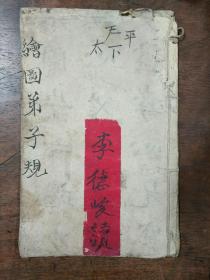 繪圖弟子規
天下太平
李德峻